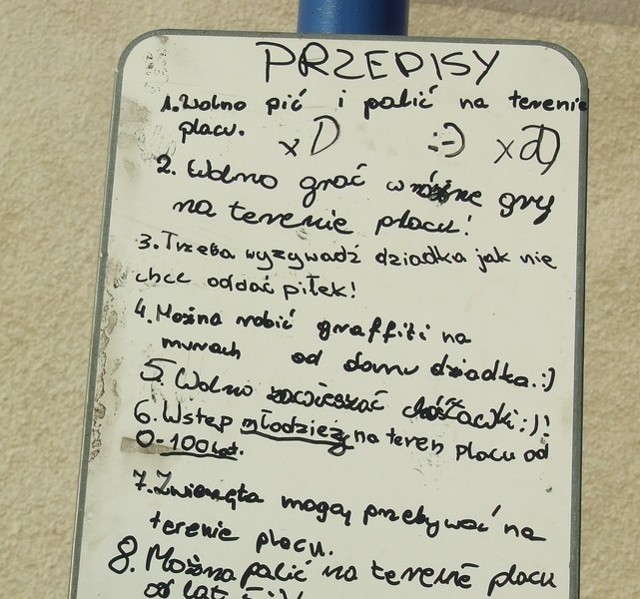 PRZEPISY
1. Wolno pić i palić na terenie
placu. xD :-) xD
2. Wolno grać w różne gry
na terenie placu!
3. Trzeba wyzywadź dziadka jak nie
chce oddać piłek!
4. Można robić graffiti na
murach od domu dziadka. :)
5. Wolno zawieszać :)!
6. Wstęp młodzieży na teren placu od
0-100 lat.
7. Zwierzęta mogą przebywać na
terenie placu.
8. Można palić na terenie placu
od lat